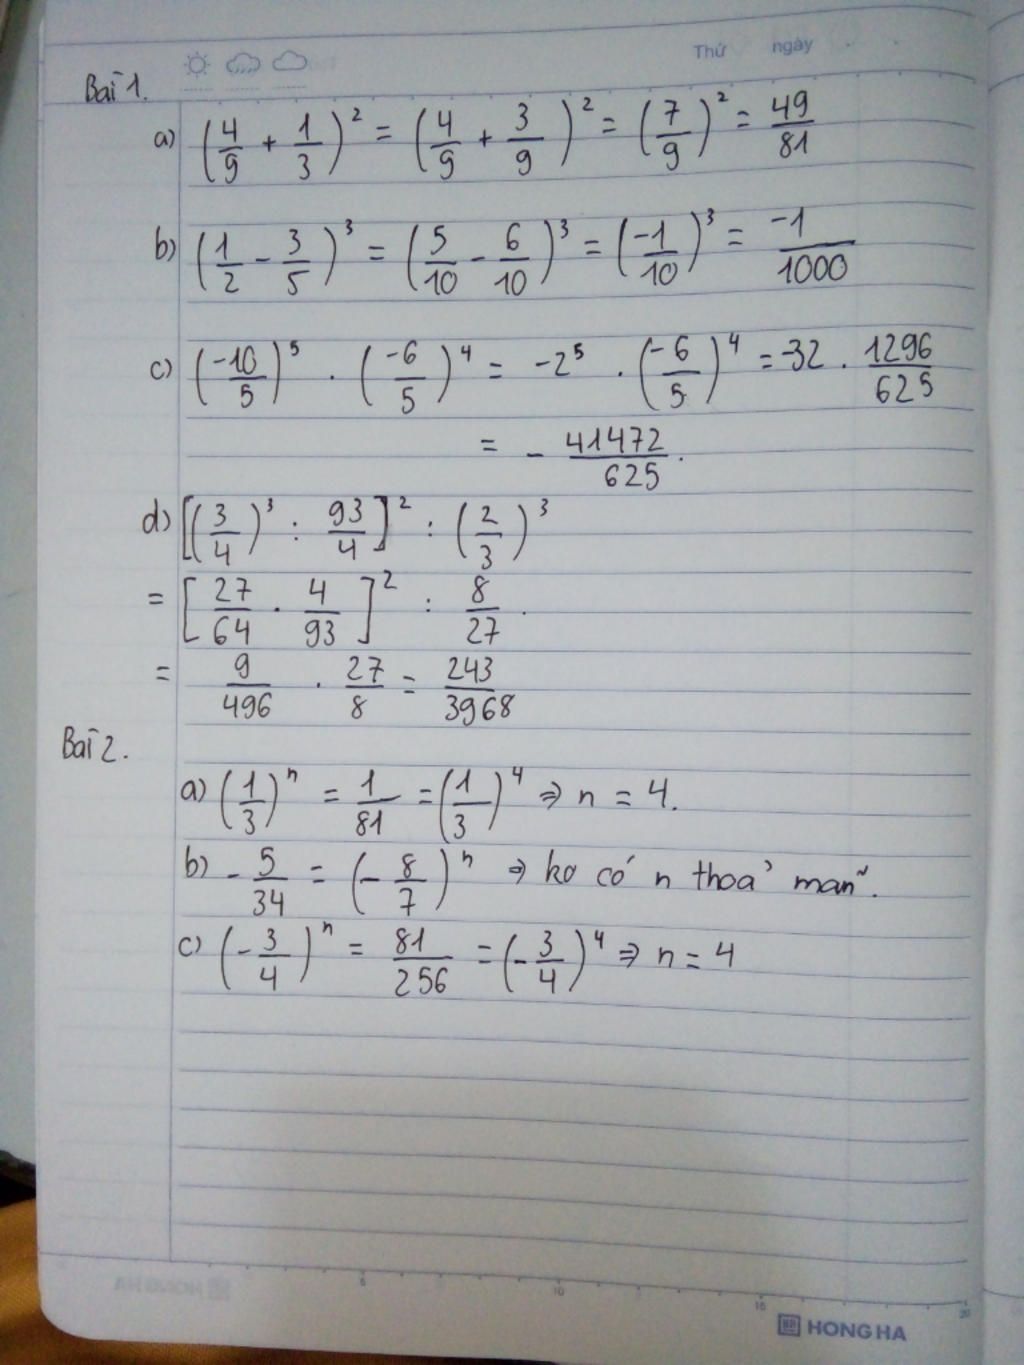 Thứ ngày
Bài 1.
a) (4/9 + 1/3)² = (4/9 + 3/9)² = (7/9)² = 49/81
b) (1/2 - 3/5)³ = (5/10 - 6/10)³ = (-1/10)³ = -1/1000
c) (-10/5)⁵ . (-6/5)⁴ = -2⁵ . (-6/5)⁴ = -32 . 1296/625
= - 41472/625.
d) [(3/4)³ : 93/4]² : (2/3)³
= [27/64 . 4/93]² : 8/27 .
= 9/496 . 27/8 = 243/3968
Bài 2.
a) (1/3)ⁿ = 1/81 = (1/3)⁴ ⇒ n = 4.
b) - 5/34 = (- 8/7)ⁿ ⇒ ko có n thoả mãn.
c) (- 3/4)ⁿ = 81/256 = (- 3/4)⁴ ⇒ n = 4
5 10 15 20
HONG HA